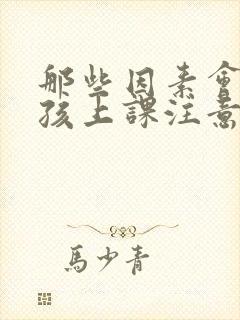 那些因素會
孩上課注意
馬少青